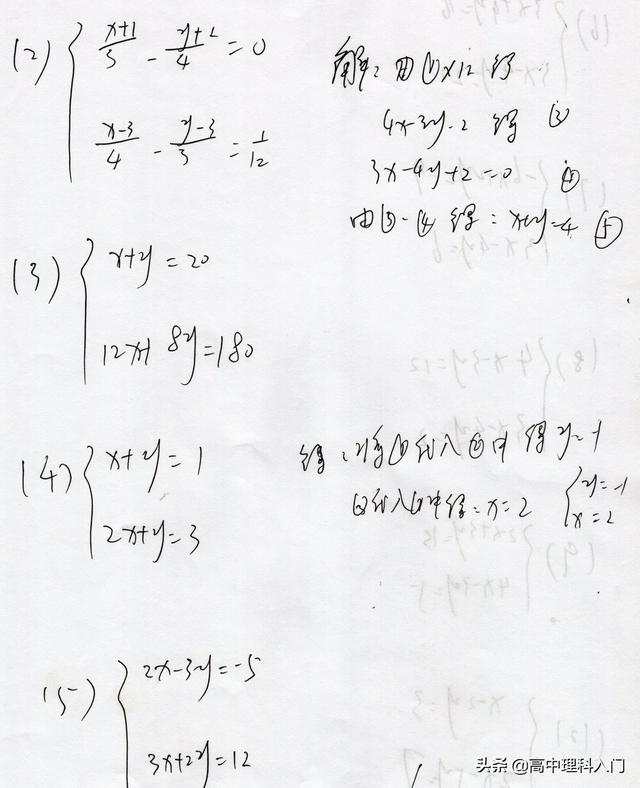 (2) { (x+1)/3 - (y+2)/4 = 0
(x-3)/4 - (y-3)/3 = 1/12
解: 由①×12 得
4x-3y=2 得 ③
3x-4y+2=0 ④
由③-④ 得: x+y=4 ⑤
(3) { x+y=20
12x+8y=180
(4) { x+y=1
2x+y=3
得: 将①代入②中 得 y=-1
代入①中得: x=2 { y=-1
x=2
(5) { 2x-3y=-5
3x+2y=12
头条 @高中理科入门